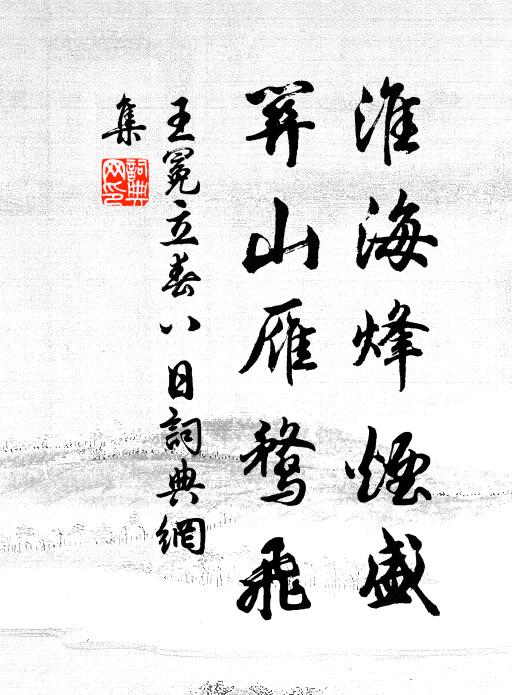 淮海烽煙盛
關山雁鶩飛
王冕立春八日詞典網
集
詞典网印